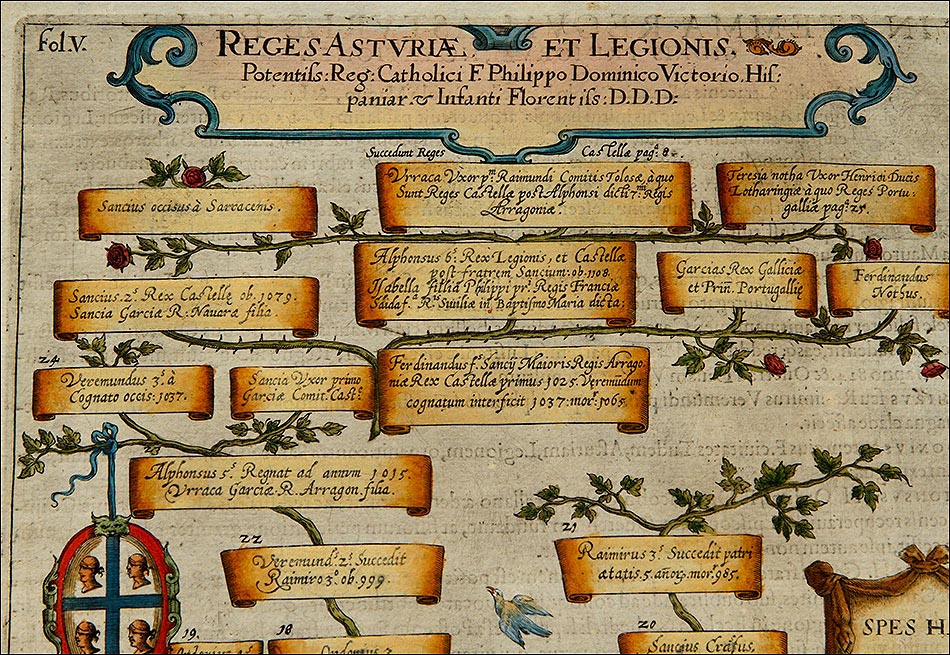 Fol. V.
REGES ASTVRIÆ, ET LEGIONIS.
Potentiſs: Reg: Catholici F. Philippo Dominico Victorio. Hiſ:
paniar. & Infanti Florentiſs: D.D.D:
Succedunt Reges Caſtellæ pag. 8.
Vrraca Vxor pri. Raimundi Comitis Tolosæ, à quo
Sunt Reges Caſtellæ poſt Alphonsi dicti 7mi Regis
Arragoniæ.
Teresia notha Vxor Henrici Ducis
Lotharingiæ à quo Reges Portu-
galliæ pag. 25.
Sancius occisus à Sarracenis.
Alphonsus 6s. Rex Legionis, et Caſtellæ
poſt fratrem Sancium. ob. 1108.
Isabella fillia Philippi pri. Regis Franciæ
Saida fa. Rs. Siuiliæ in Baptiſmo Maria dicta.
Garcias Rex Galliciæ
et Prin. Portugallię
Ferdinandus
Nothus.
Sancius. 2s. Rex Caſtellę ob. 1079.
Sancia Garciæ R. Nauaræ filia.
24
Veremundus 3s. à
Cognato occis: 1037.
Sancia Vxor primo
Garciæ Comit. Caſt:
Ferdinandus fs. Sancij Maioris Regis Arrago
niæ Rex Caſtellæ primus 1025. Veremūdum
cognatum interficit 1037: mor. 1065.
23
Alphonsus 5s. Regnat ad annum 1015.
Vrraca Garciæ. R. Arragon. filia.
22
Veremund. 2s. Succedit
Raimiro 3o. ob. 999.
21
Raimirus 3s. Succedit patri
ætatis. 5. año. mor. 985.
SPES H
20
Sancius Craſsus.
19.
18
Ordonius 3